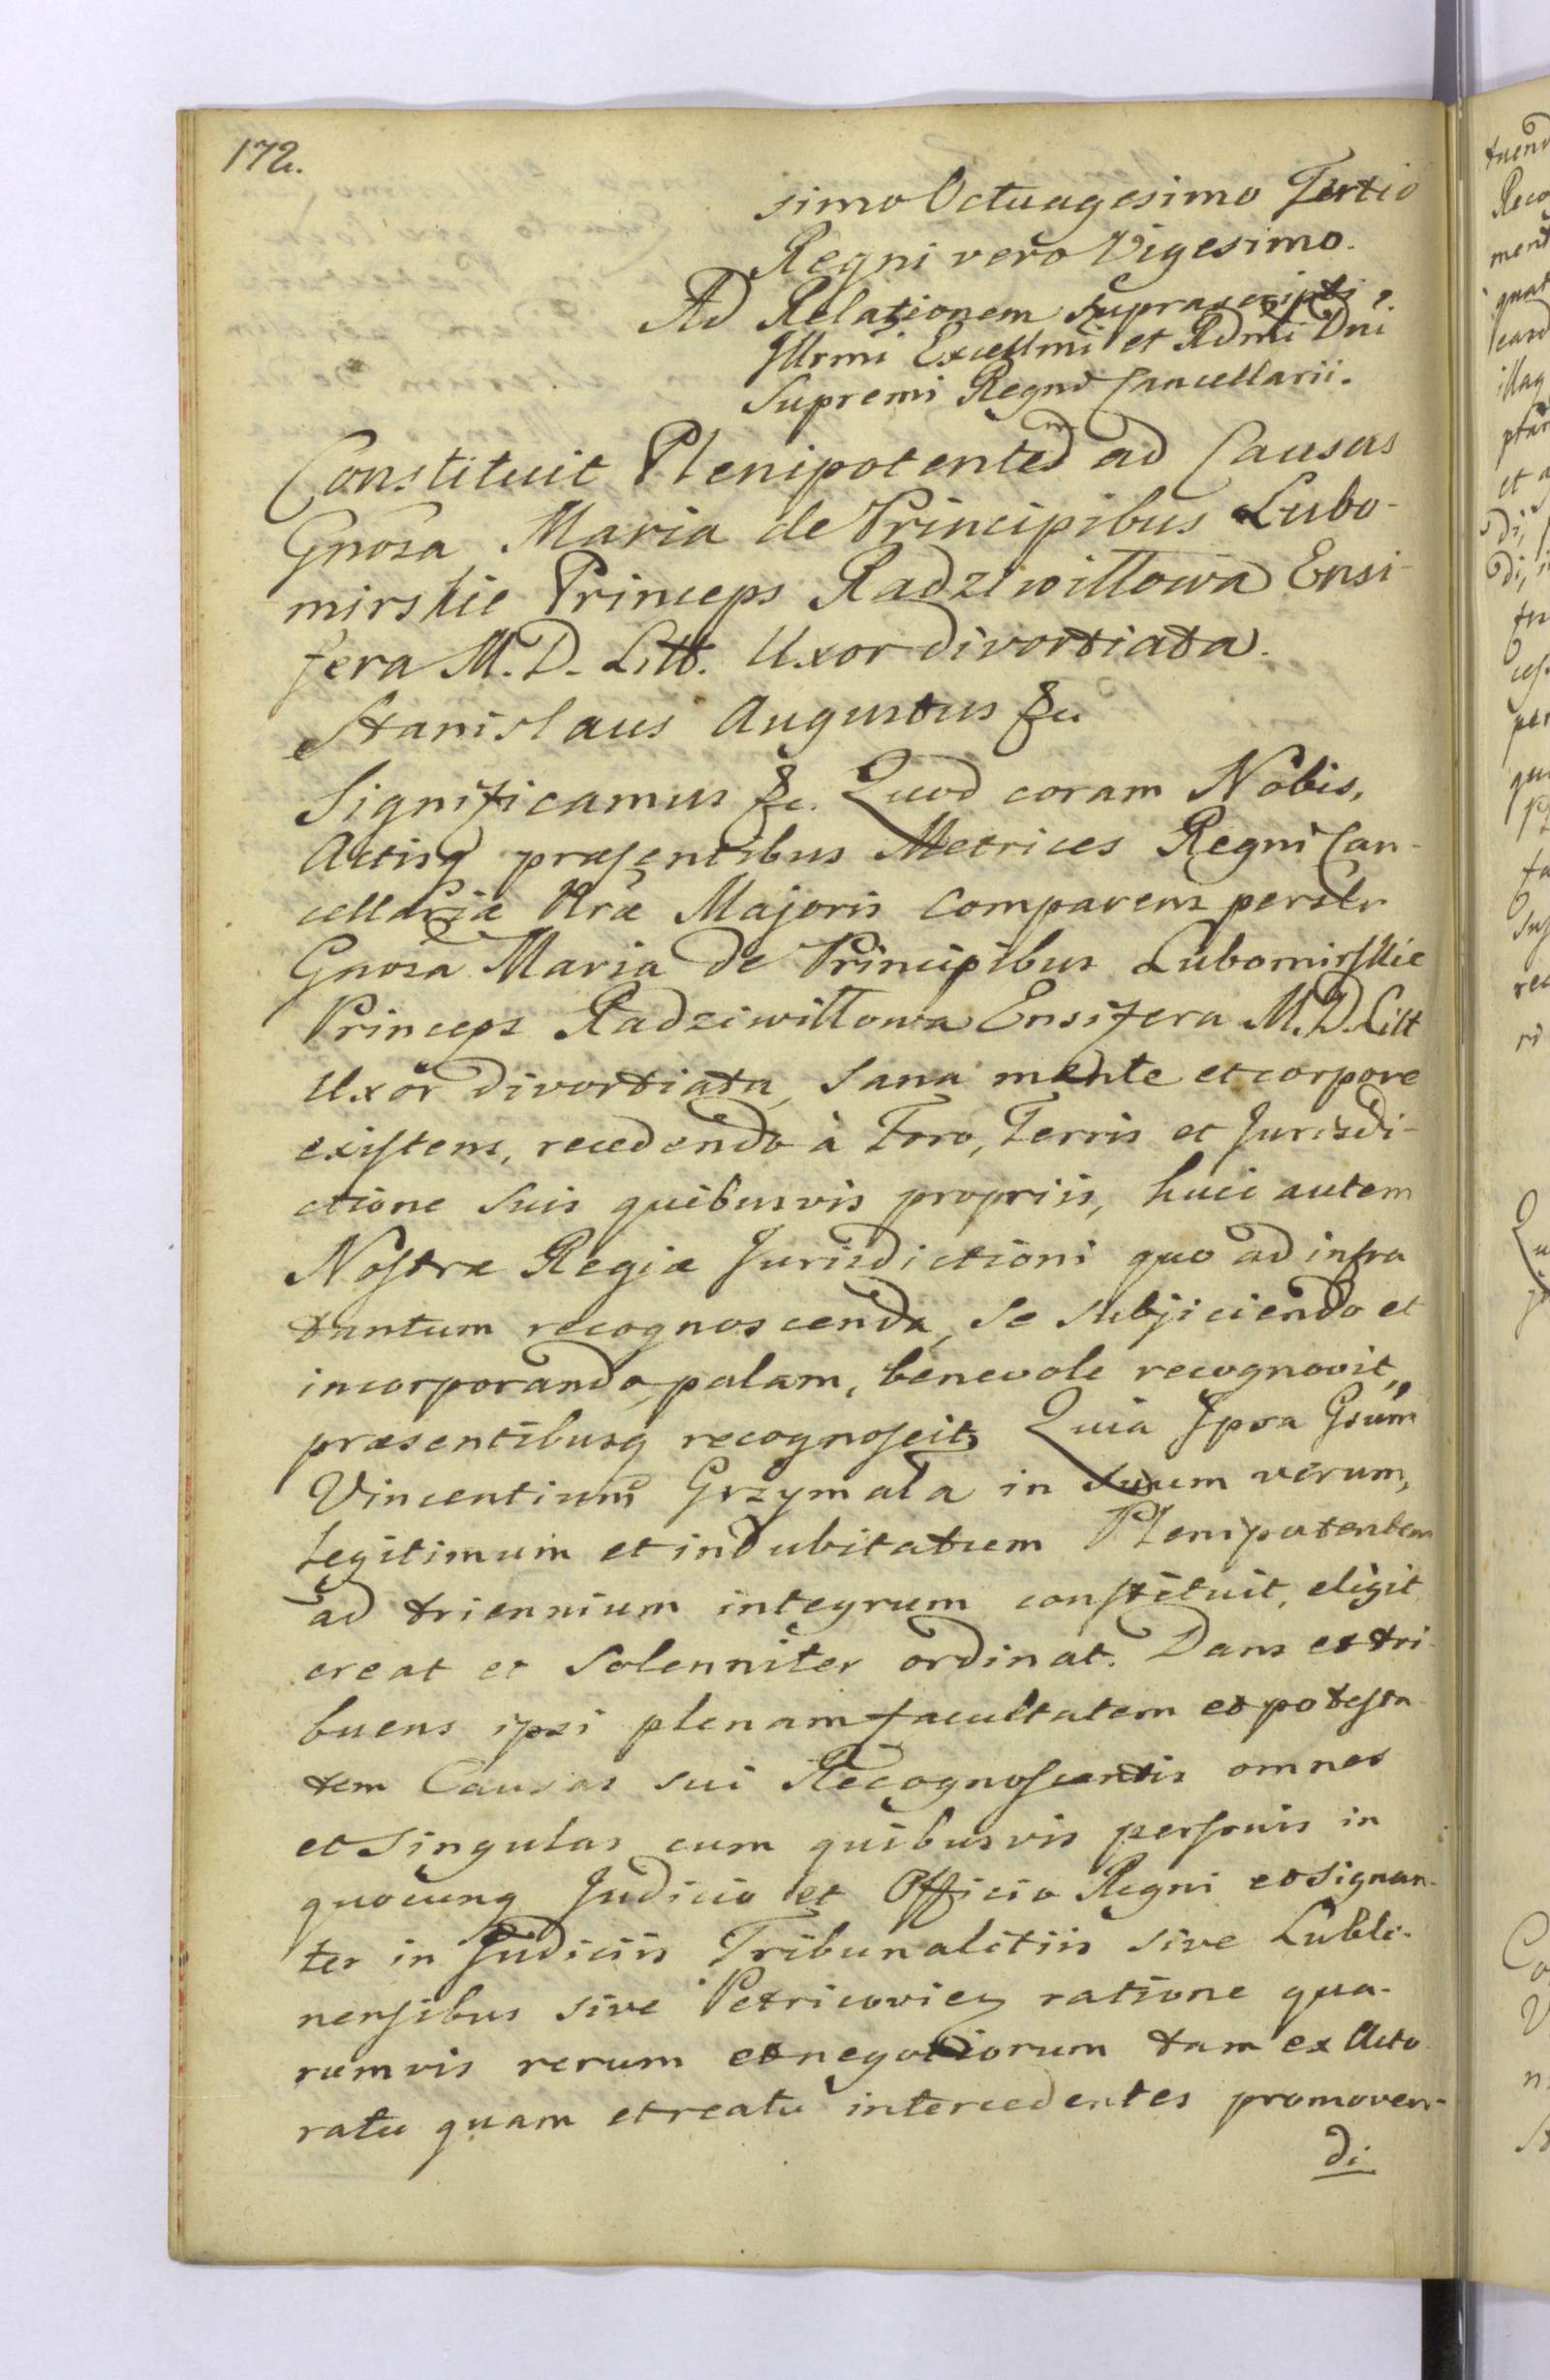 172.
simo Octuagesimo Tertio
Regni vero Vigesimo.
Ad Relationem suprascripti
Illrmi Excellmi et Rdmi Dni
Supremi Regni Cancellarii.
Constituit Plenipotentem ad Causas
Gnosa Maria de Principibus Lubo-
mirskie Princeps Radziwiłłowa Ensi-
fera M. D. Litt. Uxor divortiata.
Stanislaus Augustus &c
Significamus &c. Quod coram Nobis,
Actisq præsentibus Metrices Regni Can-
cellariæ Nræ Majoris comparens persлr
Gnosa Maria de Principibus Lubomirskie
Princeps Radziwiłłowa Ensifera M. D. Litt
Uxor divortiata, sana mente et corpore
existens, recedendo à Foro, Terris et Jurisdi-
ctione suis quibusvis propriis, huic autem
Nostræ Regiæ Jurisdictioni quo ad infra
tantum recognoscenda, se subjiciendo et
incorporando, palam, benevole recognovit,
præsentibusq recognoscit, Quia Ipsa Gsum
Vincentium Grzymała in suum verum,
legitimum et indubitatum Plenipotentem
ad triennium integrum constituit, eligit
creat et solenniter ordinat. Dans et tri-
buens ipsi plenam facultatem et potesta-
tem Causas sui Recognoscentis omnes
et singulas cum quibusvis personis in
quocunq Judicio et Officio Regni et signan-
ter in Judiciis Tribunalitiis sive Lubli-
nensibus sive Petricovien ratione qua-
rumvis rerum et negotiorum tam ex Acto-
ratu quam et reatu intercedentes promoven-
di